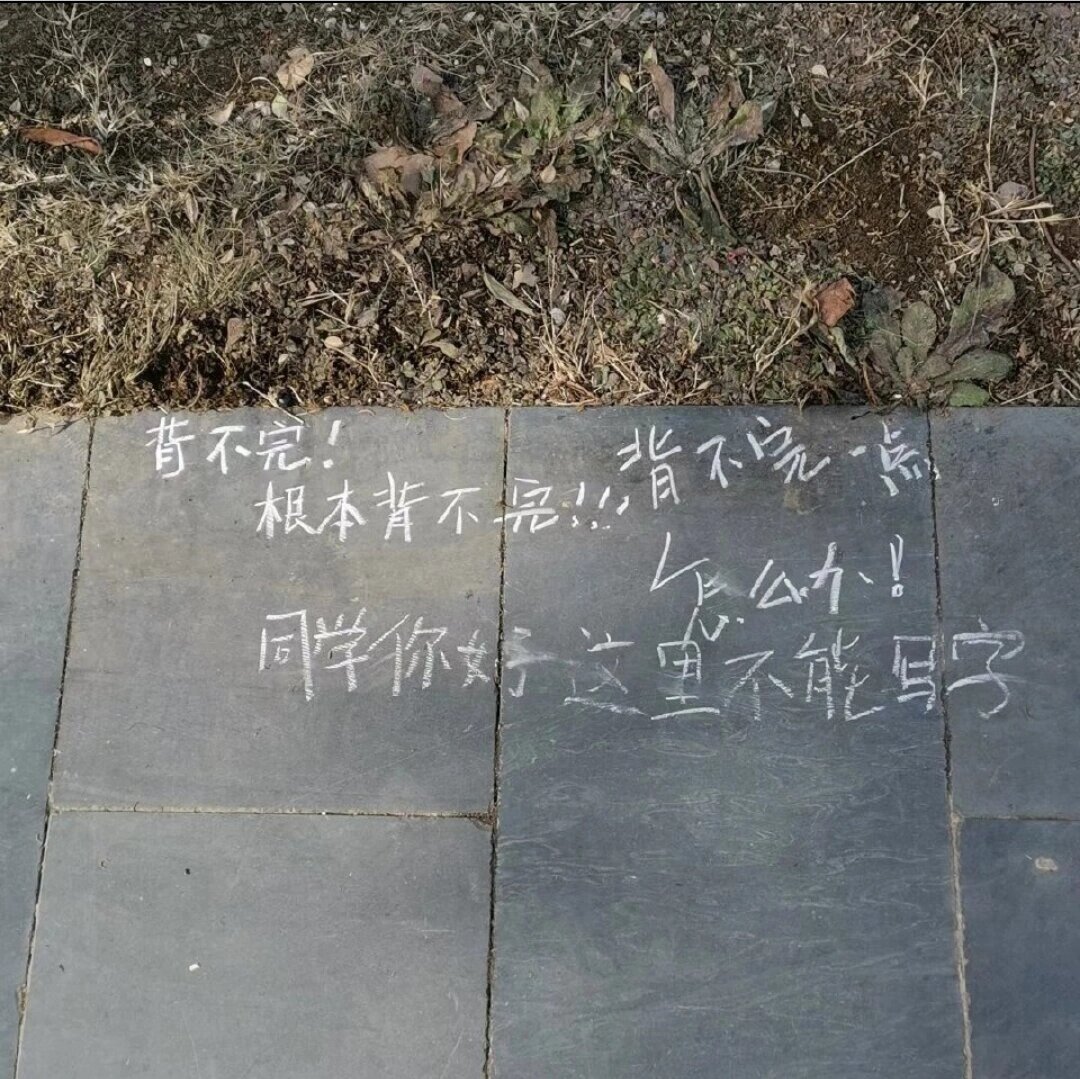 背不完！
根本背不完!!!
背不完一点
怎么办！
同学你好这里不能写字